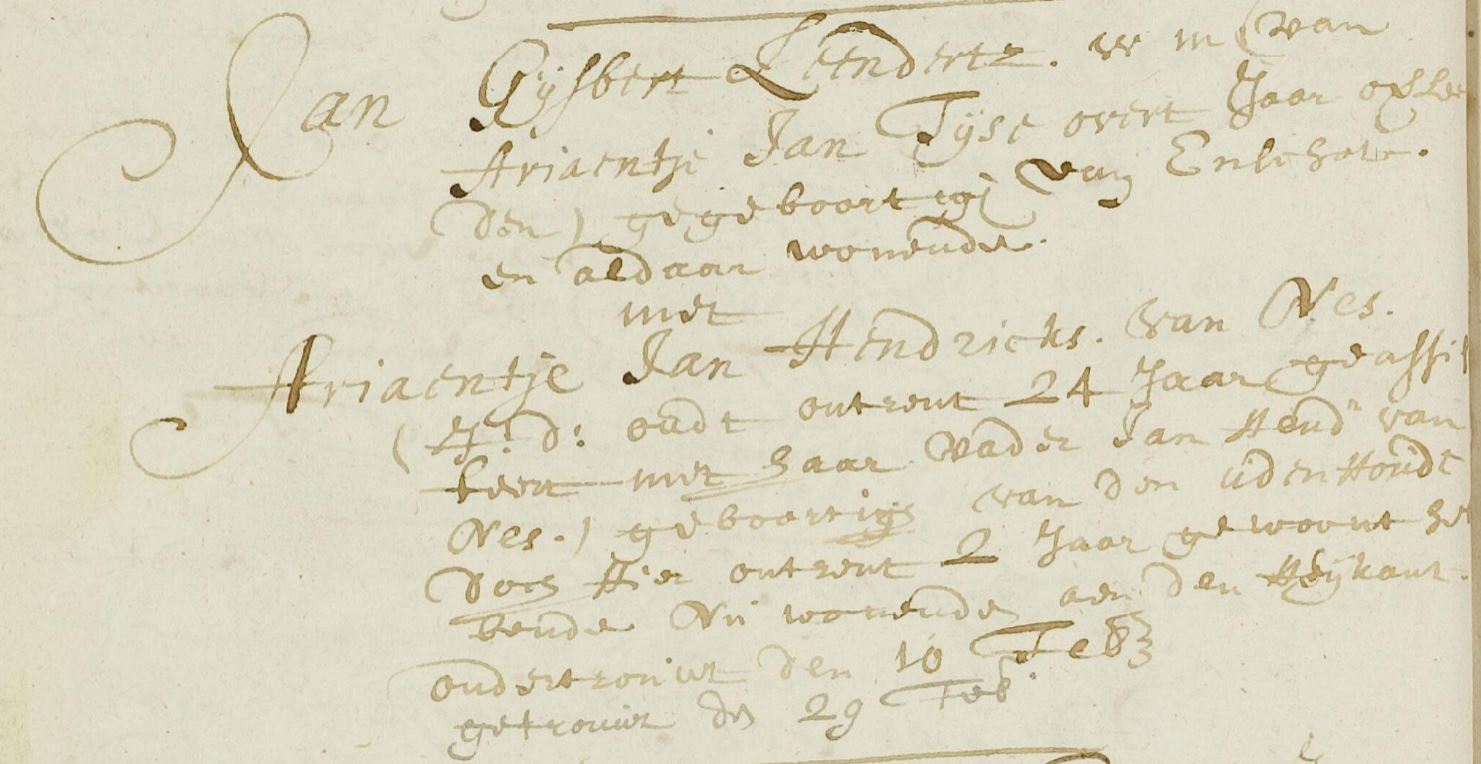 Jan Gijsbert Leendertz. w m (van
Ariaentje Jan Tijse overt Jaar overle
den) gegeboortigh van Enschot.
en aldaar wonende.
met
Ariaentje Jan Hendricks. van Nes.
(J: D: oudt ontrent 24 Jaar geassis
teert met haar Vader Jan Hendr van
Nes.) geboortigh van den udenHoudt
Doch Hier ontrent 2 Jaar gewoont he
bende Nu wonende aen den Heijkant.
ondertrouwt den 10 Feb
getrouwt den 29 Feb